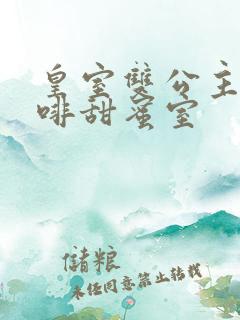 皇室雙公主
啡甜蜜室
儲粮
未经同意禁止转载